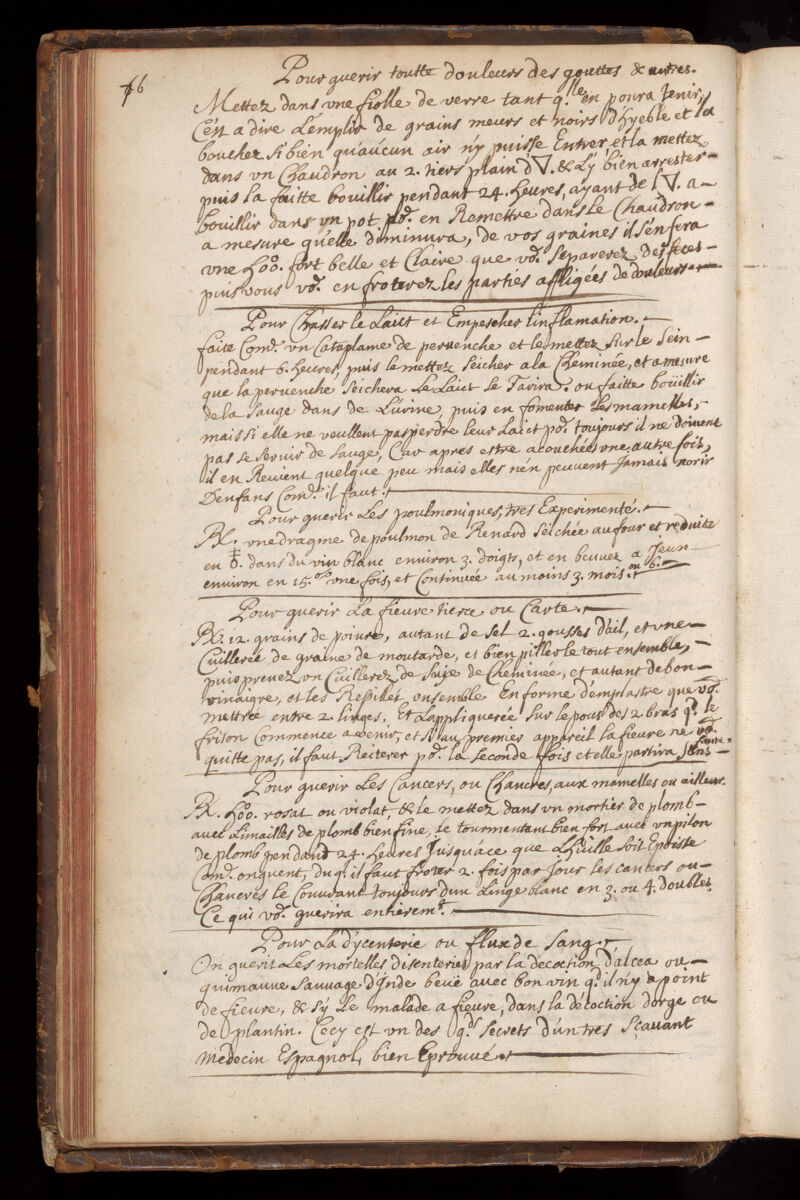 76
Pour guerir toutte douleurs des gouttes & autres.
Mettez dans vne fiolle de verre tant q.lle en poura tenir,
C'est a dire L'emplir de grains meurs et noirs d'hyeble et la
bouchez si bien qu'aucun air n'y puisse Entrer et la mettez
dans vn Chaudron au 2. tiers plain d'▽. & L'y bien arrester
puis la faitte bouillir pendant 24. heures, ayant de l'▽. a
bouillir dans vn pot po.r en Remettre dans le Chaudron
a mesure qu'elle diminura, de vos graines il s'en fera
vne hoo. fort belle et Claire que vo.s separerez des feces
puis vous vo.s en froterez les parties affligées de douleurs.
Pour Chasser le Laict et Empescher l'inflamation.
faite Com.e vn Cataplame de peruenche et le mettez sur le sein
pendant 6. heures, puis le mettez seicher a la Cheminée, et a mesure
que la peruenche seichera Le Laict se Tarira. ou faitte boüillir
de la sauge dans de L'urine, puis en fomenter les mamelles,
mais si elle ne veullent pas perdre leur Laict po.r toujours il ne doiuent
pas se seruir de sauge, Car apres estre acouchées vne autre fois,
il en Reuient quelque peu mais elles n'en peuuent Jamais norir
D'enfans Com.e il faut.
Pour guerir Les poulmoniques, tres Experimenté.
℞. vne dragme de poulmon de Renard seichée au four et reduite
en dans du vin blanc enuiron 3. doigts, et en beuuez a Jeun
enuiron en 15. vne fois, et Continuée au moins 3. mois. ou 6.
Pour guerir La fieure tierce ou Carte.
℞. 12. grains de poiure, autant de sel 2. gousses d'ail, et vne
Cuillerée de graine de moutarde, et bien piller le tout ensemble,
puis prenez vn Cuillerez de suje de Cheminée, et autant de bon
vinaigre, et les ensemble En forme d'emplastre que vo.s
mettrée entre 2. linges, Et L'appliquerée sur le pous des 2 bras q.d le
frison Commence a venir, et si au premier appareil la fieure ne vo.s
quitte pas, il faut Reiterer po.r la seconde fois et elle partira sans faute.
Pour guerir Les Cancers, ou Chancres, aux mamelles ou ailleurs.
℞. hoo. rosat ou violat, & le mettez dans vn mortier de plomb
auec Limailles de plomb bien fine, le tourmentant bien fort auec vn pilon
de plomb pendant 24. heures Jusqu'a ce que L'huille soit Epoisse
Com.e onguent, duq.l il faut froter 2. fois par Jour les cancers ou
Chancres le Couurant toujours d'un Linge blanc en 3. ou 4. doubles,
Ce qui vo.s guerira entierem.t
Pour La dycenterie ou flux de sang.
On guerit Les mortelles disenteries par la decoction d'alcea ou
guimauue sauuage d'Inde beuë auec bon vin q.d il n'y a point
de fieure, & s'y Le malade a fieure, dans la decoction d'orge ou
de plantin. Cecy est vn des g.ds secrets d'un tres sçauant
Medecin Espagnol, bien Eprouué.